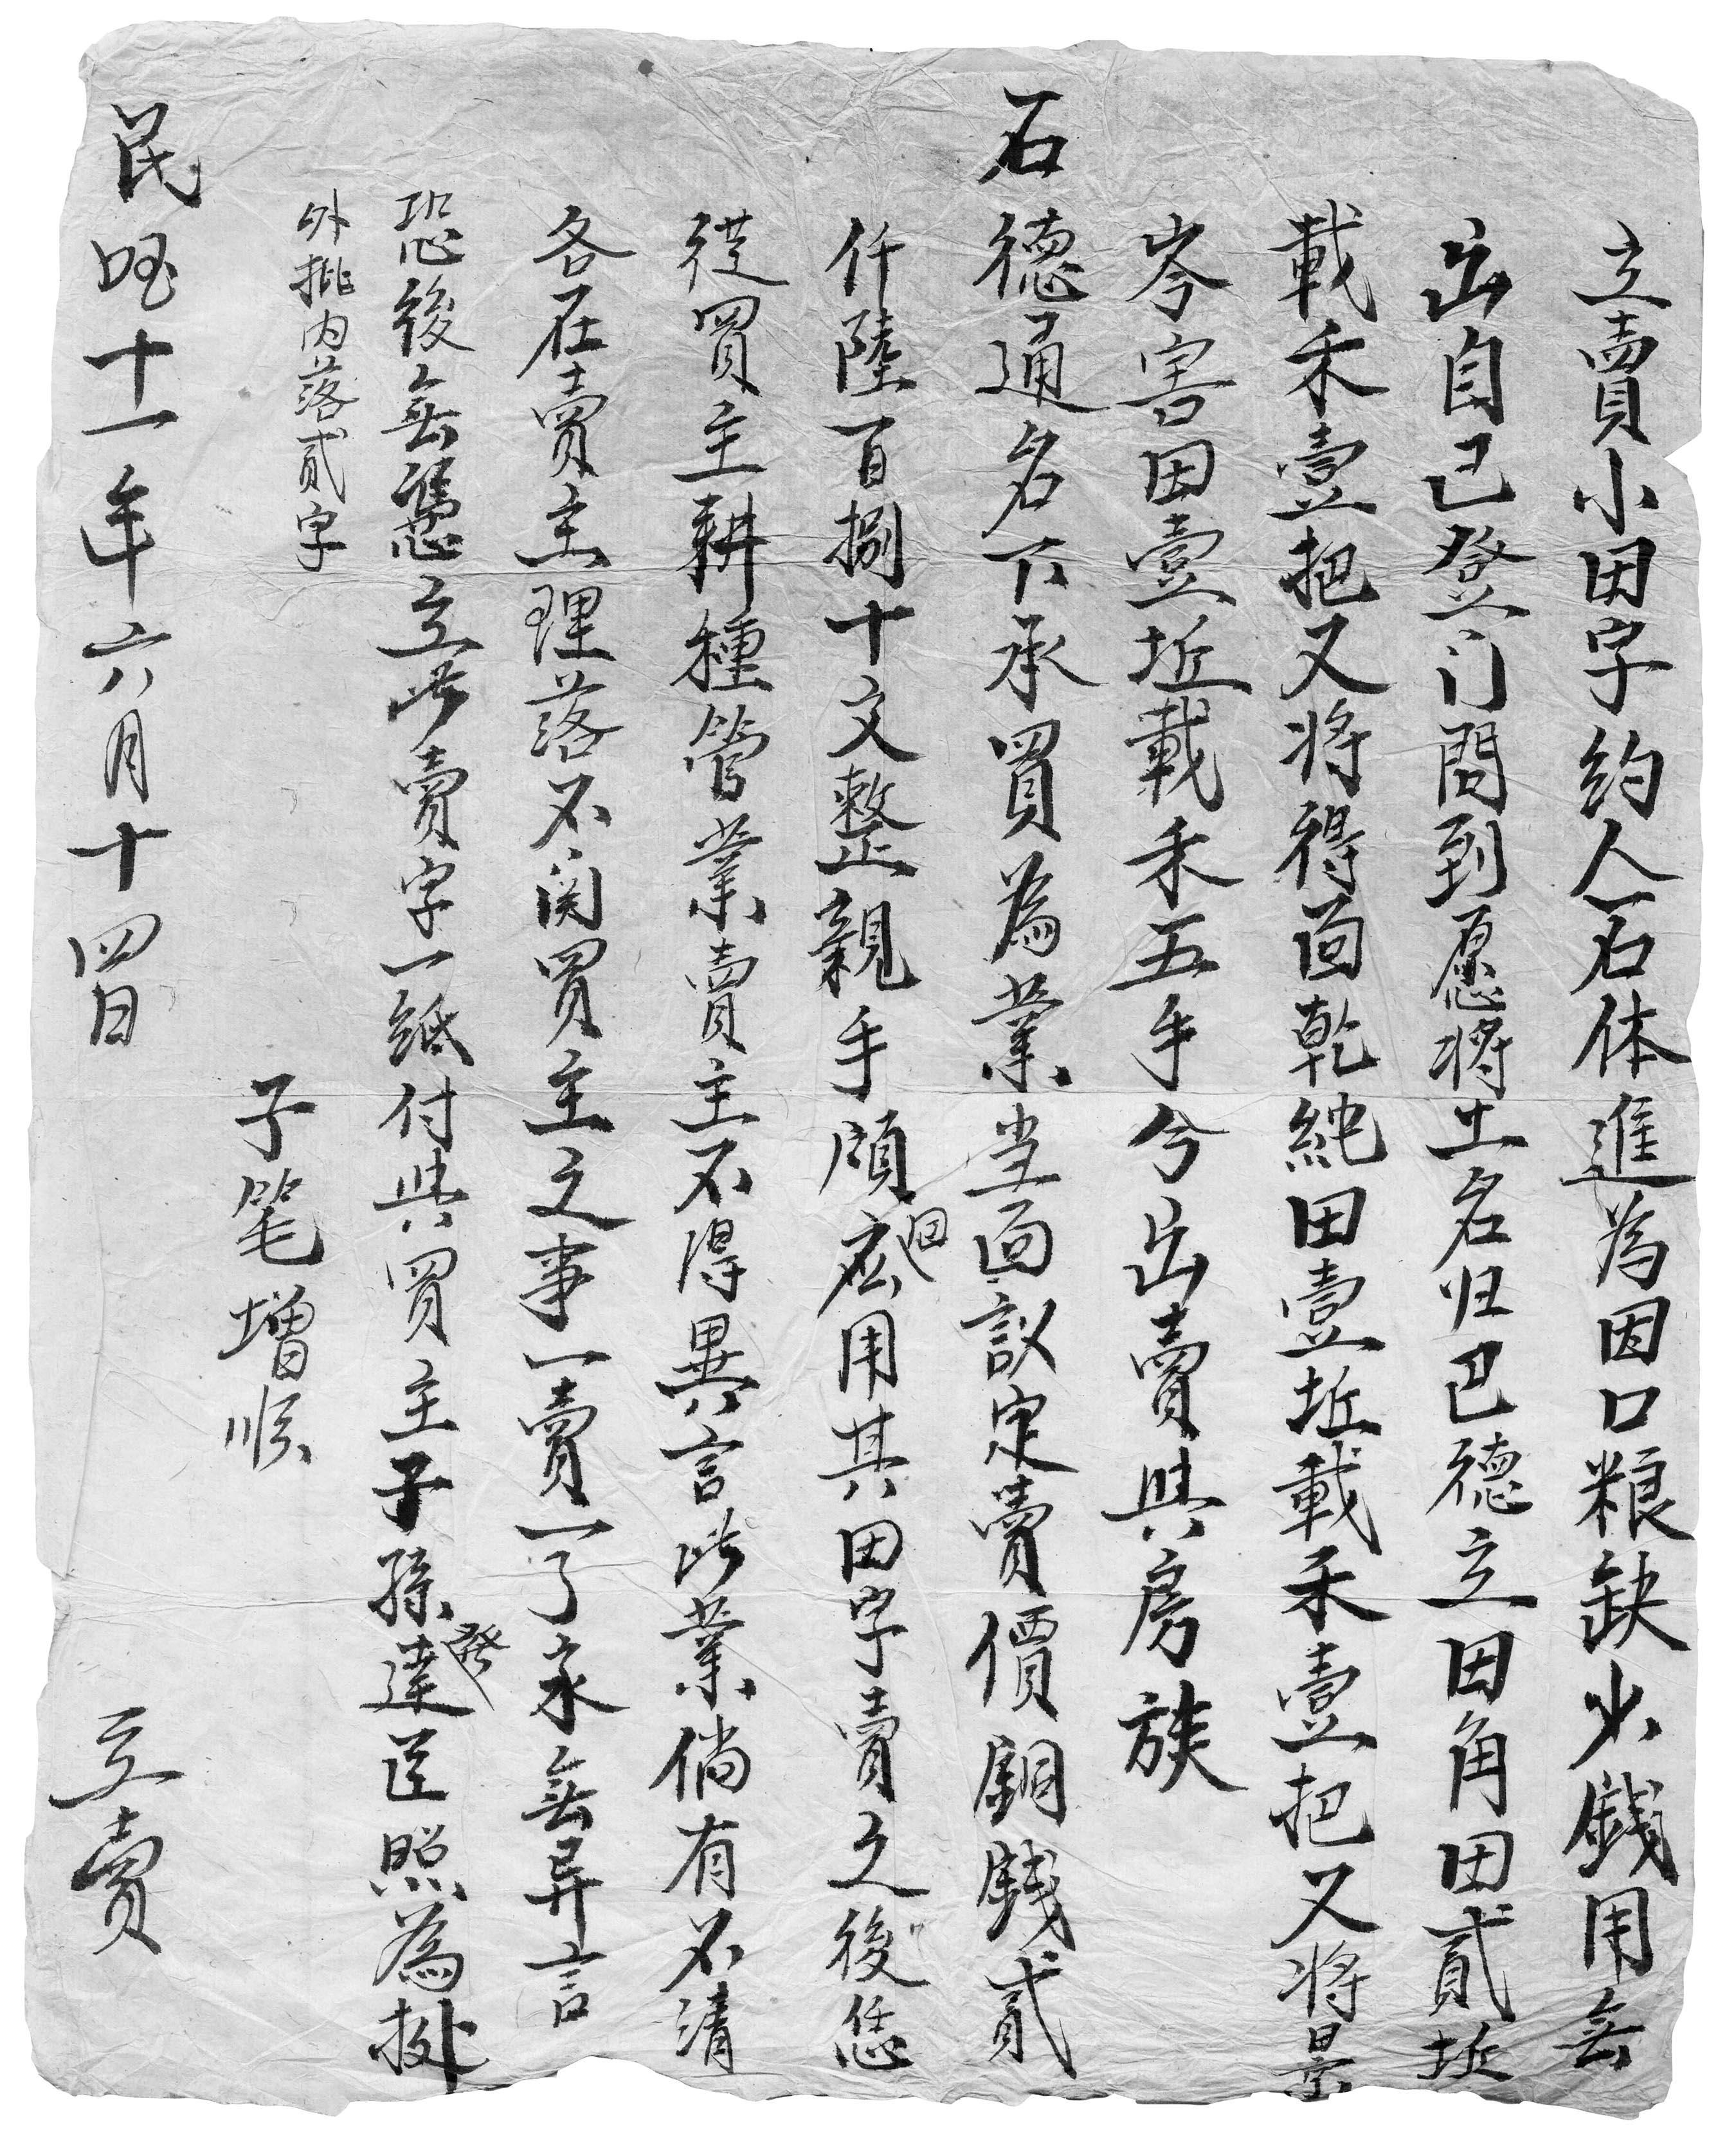 立賣小田字約人石体進為因口粮缺少錢用無
出自己登门問到愿將土名归巴德立田角田貳坵
載禾壹把又將得面乾純田壹坵載禾壹把又將景
岑害田壹坵載禾五手今出賣與房族
石德通名下承買為業当面议定賣價銅錢貳
仟陸百捌十文整親手領回應用其田字賣之後恁
從買主耕種管業賣主不得異言此業倘有不清
各在賣主理落不関買主之事一賣一了永無异言
恐後無憑立此賣字一纸付與買主子孫發達存照為據
外批内落貳字
子笔增順
民囯十一年六月十四日 立賣